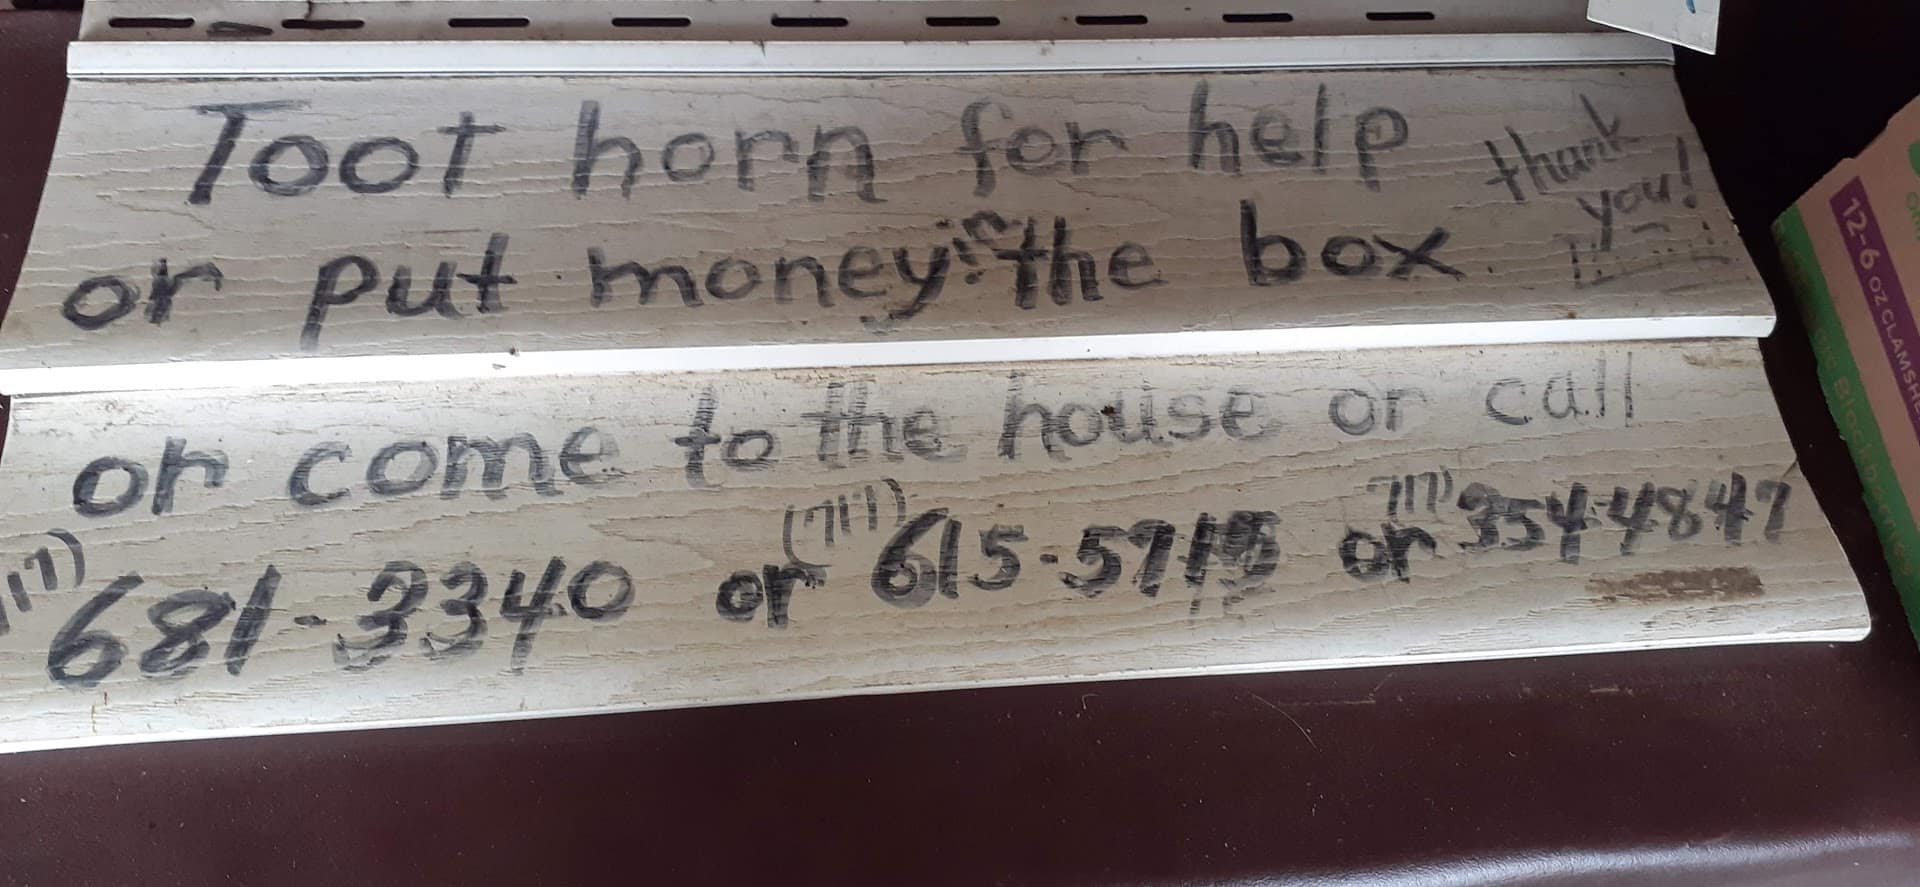 Toot horn for help
thank
you!
or put money in the box
or come to the house or call
681-3340 or (717) 615- or 717) 354-4847
12-6 OZ CLAMSHE
Blackberries